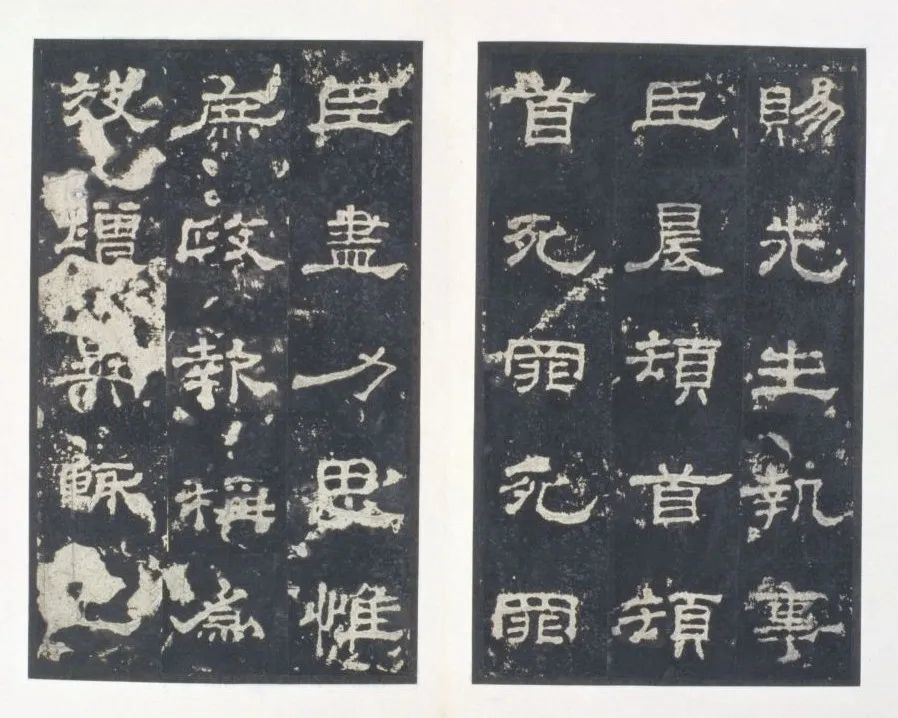 賜先生執事
臣晨頓首頓
首死罪死罪
臣盡力思惟
庶政報稱為
效增異輒上